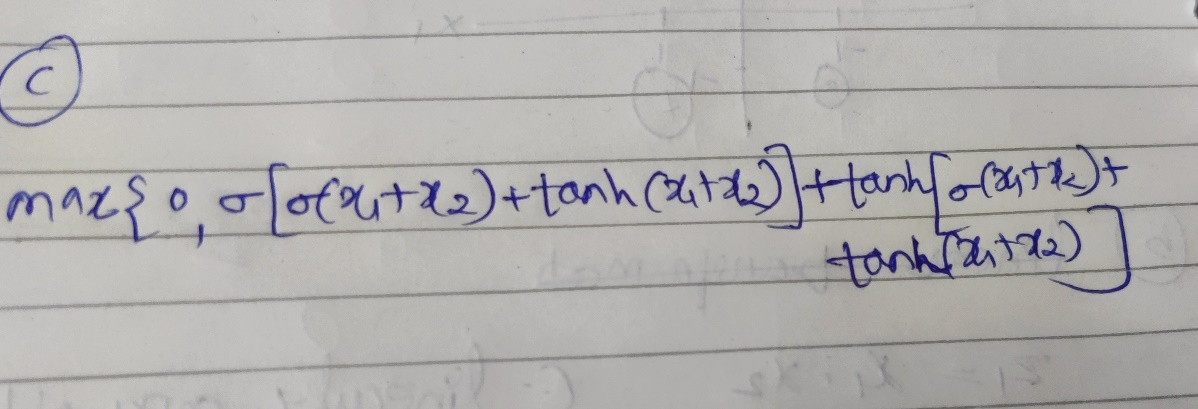 C
max{ 0, σ[σ(x₁+x₂)+tanh(x₁+x₂)]+tanh[σ(x₁+x₂)+
tanh(x₁+x₂)]